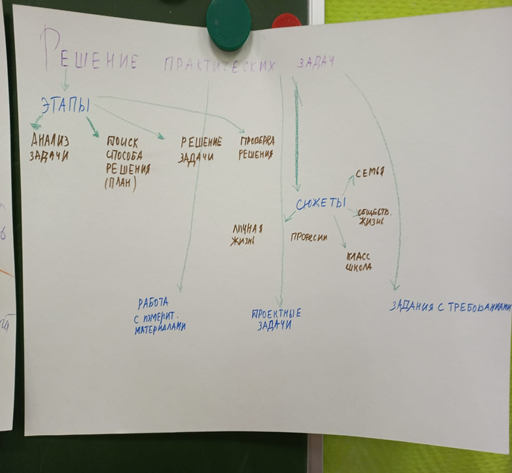 РЕШЕНИЕ ПРАКТИЧЕСКИХ ЗАДАЧ
ЭТАПЫ
АНАЛИЗ
ЗАДАЧИ
ПОИСК
СПОСОБА
РЕШЕНИЯ
(ПЛАН)
РЕШЕНИЕ
ЗАДАЧИ
ПРОВЕРКА
РЕШЕНИЯ
СЮЖЕТЫ
СЕМЬЯ
ОБЩЕСТВ.
ЖИЗНЬ
КЛАСС
ШКОЛА
ПРОФЕССИИ
ЛИЧНАЯ
ЖИЗНЬ
РАБОТА
С ИЗМЕРИТ.
МАТЕРИАЛАМИ
ПРОЕКТНЫЕ
ЗАДАЧИ
ЗАДАНИЯ С ТРЕБОВАНИЯМИ